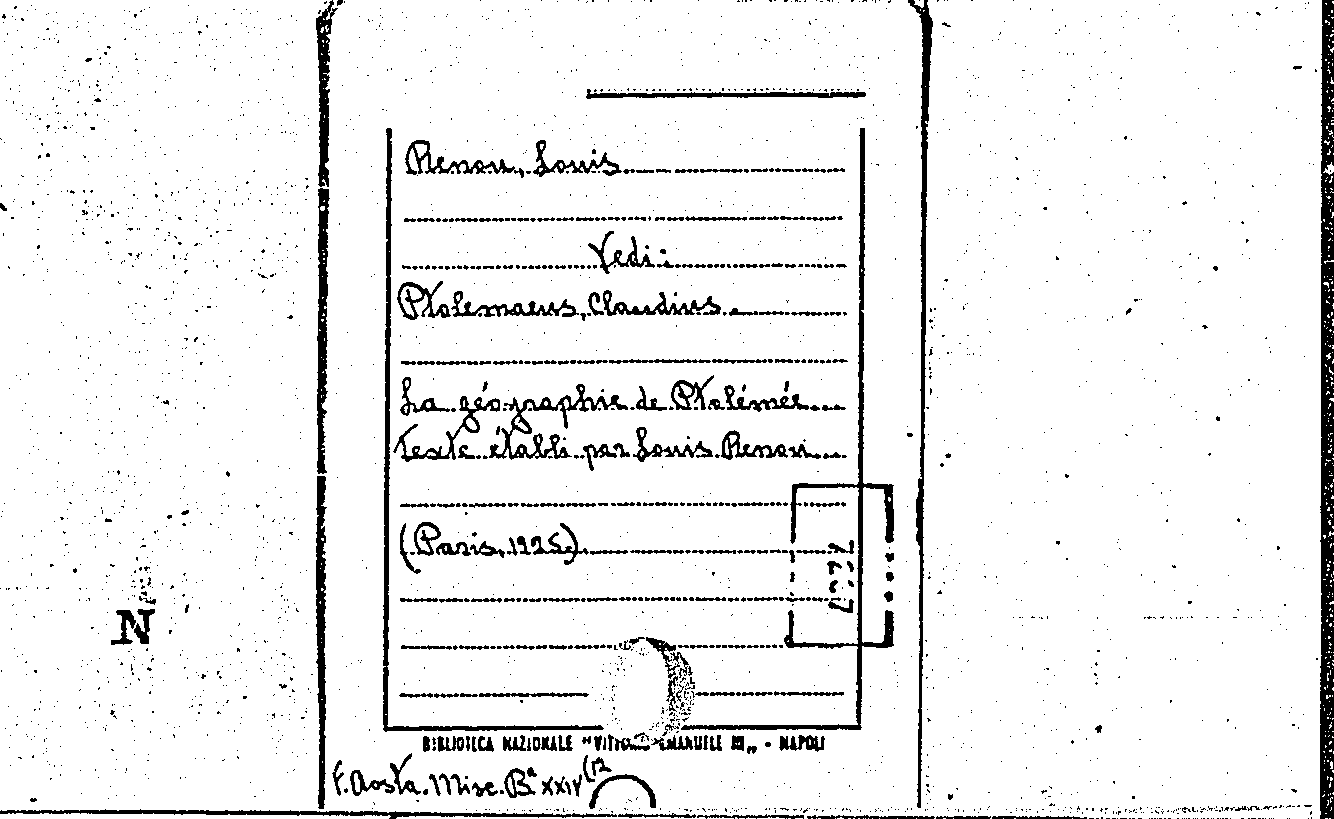 Renou, Louis
Vedi:
Ptolemaeus, Claudius.
La géographie de Ptolémée...
Texte établi par Louis Renou...
(Paris, 1925).
N
BIBLIOTECA NAZIONALE "VITTORIO EMANUELE III" - NAPOLI
F. Aosta. Misc. Bª XXIV (12